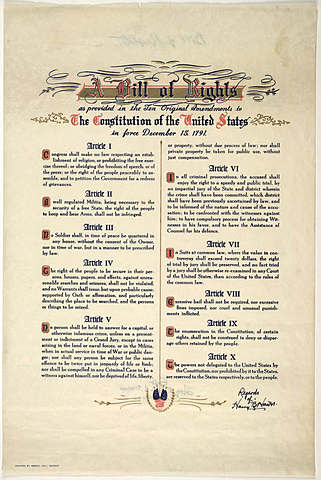 A Bill of Rights
as provided in the Ten Original Amendments to
The Constitution of the United States
in force December 15, 1791.
Article I
Congress shall make no law respecting an estab-
lishment of religion, or prohibiting the free exer-
cise thereof; or abridging the freedom of speech, or of
the press; or the right of the people peaceably to as-
semble, and to petition the Government for a redress
of grievances.
Article II
A well regulated Militia, being necessary to the
security of a free State, the right of the people
to keep and bear Arms, shall not be infringed.
Article III
No Soldier shall, in time of peace be quartered in
any house, without the consent of the Owner,
nor in time of war, but in a manner to be prescribed
by law.
Article IV
The right of the people to be secure in their per-
sons, houses, papers, and effects, against unrea-
sonable searches and seizures, shall not be violated,
and no Warrants shall issue, but upon probable cause,
supported by Oath or affirmation, and particularly
describing the place to be searched, and the persons
or things to be seized.
Article V
No person shall be held to answer for a capital, or
otherwise infamous crime, unless on a present-
ment or indictment of a Grand Jury, except in cases
arising in the land or naval forces, or in the Militia,
when in actual service in time of War or public dan-
ger; nor shall any person be subject for the same
offence to be twice put in jeopardy of life or limb;
nor shall be compelled in any Criminal Case to be a
witness against himself, nor be deprived of life, liberty,
or property, without due process of law; nor shall
private property be taken for public use, without
just compensation.
Article VI
In all criminal prosecutions, the accused shall
enjoy the right to a speedy and public trial, by
an impartial jury of the State and district wherein
the crime shall have been committed, which district
shall have been previously ascertained by law, and
to be informed of the nature and cause of the accu-
sation; to be confronted with the witnesses against
him; to have compulsory process for obtaining Wit-
nesses in his favor, and to have the Assistance of
Counsel for his defence.
Article VII
In Suits at common law, where the value in con-
troversy shall exceed twenty dollars, the right
of trial by jury shall be preserved, and no fact tried
by a jury shall be otherwise re-examined in any Court
of the United States, than according to the rules of
the common law.
Article VIII
Excessive bail shall not be required, nor excessive
fines imposed, nor cruel and unusual punish-
ments inflicted.
Article IX
The enumeration in the Constitution, of certain
rights, shall not be construed to deny or dispar-
age others retained by the people.
Article X
The powers not delegated to the United States by
the Constitution, nor prohibited by it to the States,
are reserved to the States respectively, or to the people.
Regards